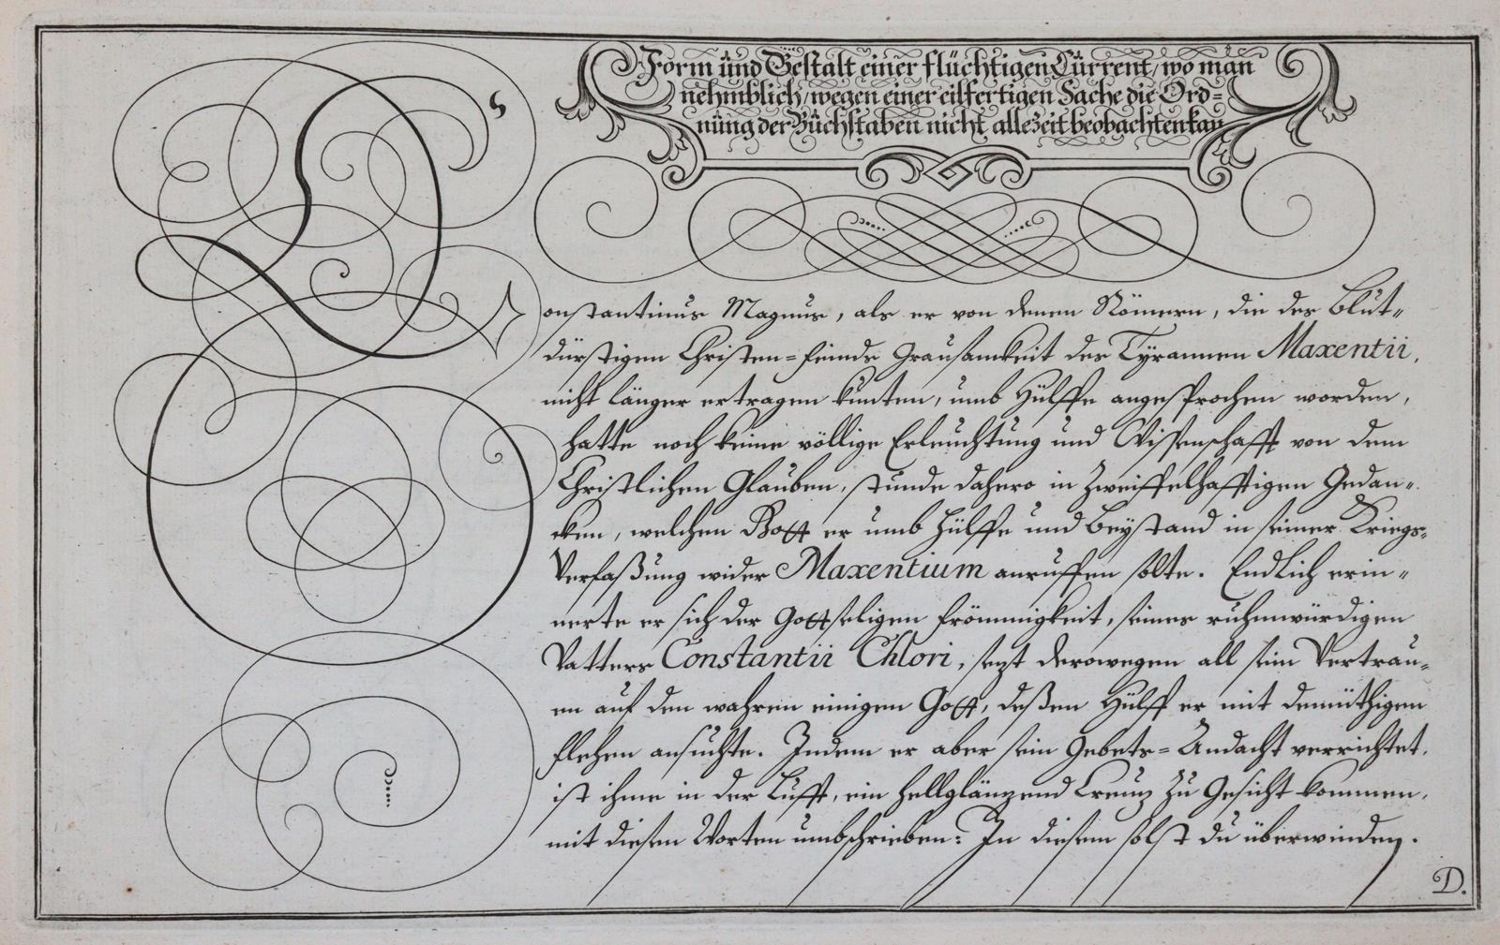 Form und Gestalt einer flüchtigen Current, wo man
nehmblich, wegen einer eilfertigen Sache die Ord=
nung der Buchstaben nicht allezeit beobachten kan
Constantinus Magnus, als er von denen Römern, die des Blut=
dürstigen Christen=feinds Grausamkeit des Tÿrannen Maxentii,
nicht länger ertragen kunten, umb Hülffe angesprochen worden,
hatte noch keine völlige Erleuchtung und Wissenschafft von dem
Christlichen Glauben, stunde dahero in Zweiffelhafftigen Gedan=
cken, welchen Gott er umb Hülffe und Beystand in seiner Kriegs=
Verfaßung wider Maxentium anruffen solte. Endlich erin=
nerte er sich der Gottseligen Frömmigkeit, seines ruhmwürdigen
Vatters Constantii Chlori, sezt derowegen all sein Vertrau=
en auf den wahren einigen Gott, deßen Hülff er mit demüthigen
flehen ansuchte. Indem er aber sein Gebets=Andacht verrichtet,
ist ihme in der Lufft, ein hellglänzend Creuz zu Gesicht kommen,
mit diesen Worten umbschrieben: In diesem solst du überwinden.
D.